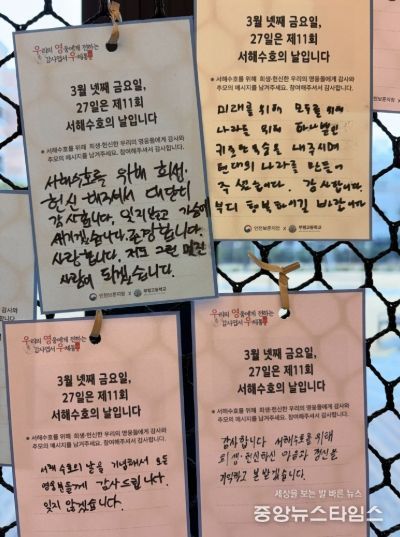 우리의 영웅에게 전하는
감사엽서 우체통
3월 넷째 금요일,
27일은 제11회
서해수호의 날입니다
※ 서해수호를 위해 희생·헌신한 우리의 영웅들에게 감사와
추모의 메시지를 남겨주세요. 참여해주셔서 감사합니다.
서해수호를 위해 희생.
헌신 해주셔서 대단히
감사합니다. 잊지않고 가슴에
새기겠습니다. 존경합니다.
사랑합니다. 저도 그런 멋진
사람이 되겠습니다.
인천보훈지청 X 부평고등학교
3월 넷째 금요일,
27일은 제11회
서해수호의 날입니다
※ 서해수호를 위해 희생·헌신한 우리의 영웅들에게 감사와
추모의 메시지를 남겨주세요. 참여해주셔서 감사합니다.
미래를 위해 모두를 위해
나라를 위해 하나뿐인
귀중한 목숨을 내주시며
현대의 나라를 만들어
주셨습니다. 감사합니다.
부디 행복하시길 바랍니다
인천보훈지청 X 부평고등학교
우리의 영웅에게 전하는
감사엽서 우체통
3월 넷째 금요일,
27일은 제11회
서해수호의 날입니다
※ 서해수호를 위해 희생·헌신한 우리의 영웅들에게 감사와
추모의 메시지를 남겨주세요. 참여해주셔서 감사합니다.
서해 수호의 날을 기념해서 모든
영웅분들께 감사드립니다.
잊지 않겠습니다.
우리의 영웅에게 전하는
감사엽서 우체통
3월 넷째 금요일,
27일은 제11회
서해수호의 날입니다
※ 서해수호를 위해 희생·헌신한 우리의 영웅들에게 감사와
추모의 메시지를 남겨주세요. 참여해주셔서 감사합니다.
감사합니다 서해수호를 위해
희생·헌신하신 마음과 정신을
기억하고 본받겠습니다.
세상을 보는 발 빠른 뉴스
중앙뉴스타임스